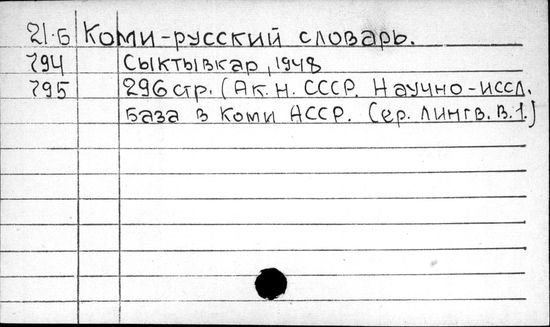 21·Б Коми-русский словарь.
794 Сыктывкар, 1948
795 296 стр. (Ак. Н. СССР. Научно-иссл.
база в Коми АССР. Сер. Лингв. В.1.)